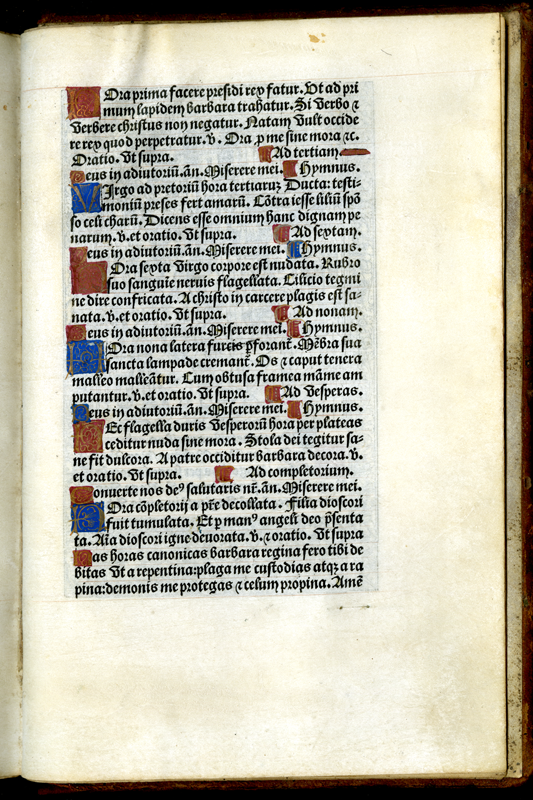 HOra prima facere presidi rex fatur. Ut ad pri
mum lapidem barbara trahatur. Si verbo ⁊
verbere christus non negatur. Natam vult occide
re rex quod perpetratur. v̄. Ora ꝓ me sine mora ⁊c.
Oratio. Vt supra. ¶ Ad tertiam
Deus in adiutoriū. an̄. Miserere mei. ¶ Hymnus.
VIrgo ad pretoriū hora tertiaruꝫ Ducta: testi-
moniū preses fert amarū. Cōtra iesse liliū spō
so celi charū. Dicens esse omnium hanc dignam pe
narum. v̄. et oratio. Vt supra. ¶ Ad sextam.
Deus in adiutoriū. an̄. Miserere mei. ¶ Hymnus.
HOra sexta virgo corpore est nudata. Rubro
suo sanguine neruis flagellata. Cilicio tegmi
ne dire confricata. A christo in carcere plagis est sa-
nata. v̄. et oratio. Vt supra. ¶ Ad nonam.
Deus in adiutoriū. an̄. Miserere mei. ¶ Hymnus.
HOra nona latera furcis ꝑforant̄. Mēbra sua
sancta lampade cremant̄. Os ⁊ caput tenera
malleo malleātur. Cum obtusa framea māme am
putantur. v̄. et oratio. Vt supra. ¶ Ad vesperas.
Deus in adiutoriū. an̄. Miserere mei. ¶ Hymnus.
ET flagella duris vesperorū hora per plateas
ceditur nuda sine mora. Stola dei tegitur sa-
ne fit dulcora. A patre occiditur barbara decora. v̄.
et oratio. Vt supra. ¶ Ad completorium.
Conuerte nos deꝰ salutaris nr̄. an̄. Miserere mei.
HOra cōpletorij a pr̄e decollata. Filia dioscori
fuit tumulata. Et ꝑ manꝰ angeli deo p̄senta
ta. Aīa dioscori igne deuorata. v̄. ⁊ oratio. Vt supra
Has horas canonicas barbara regina fero tibi de
bitas Vt a repentina: plaga me custodias atqꝫ a ra
pina: demonis me protegas ⁊ celum propina. Amē